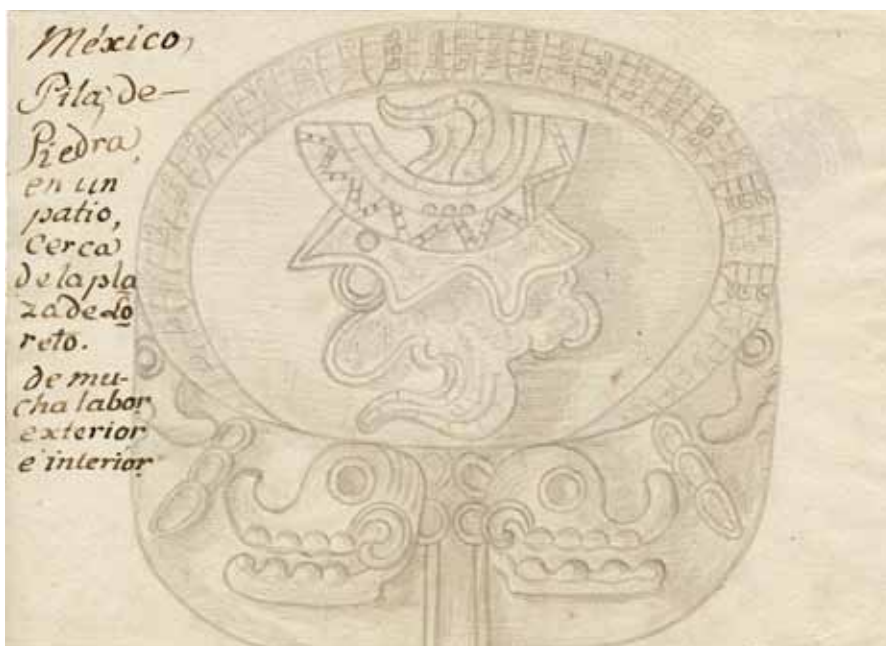 México,
Pila, de—
Piedra,
en un
patio,
cerca
de la pla
za de Lo
reto.
de mu-
cha labor
exterior
e interior